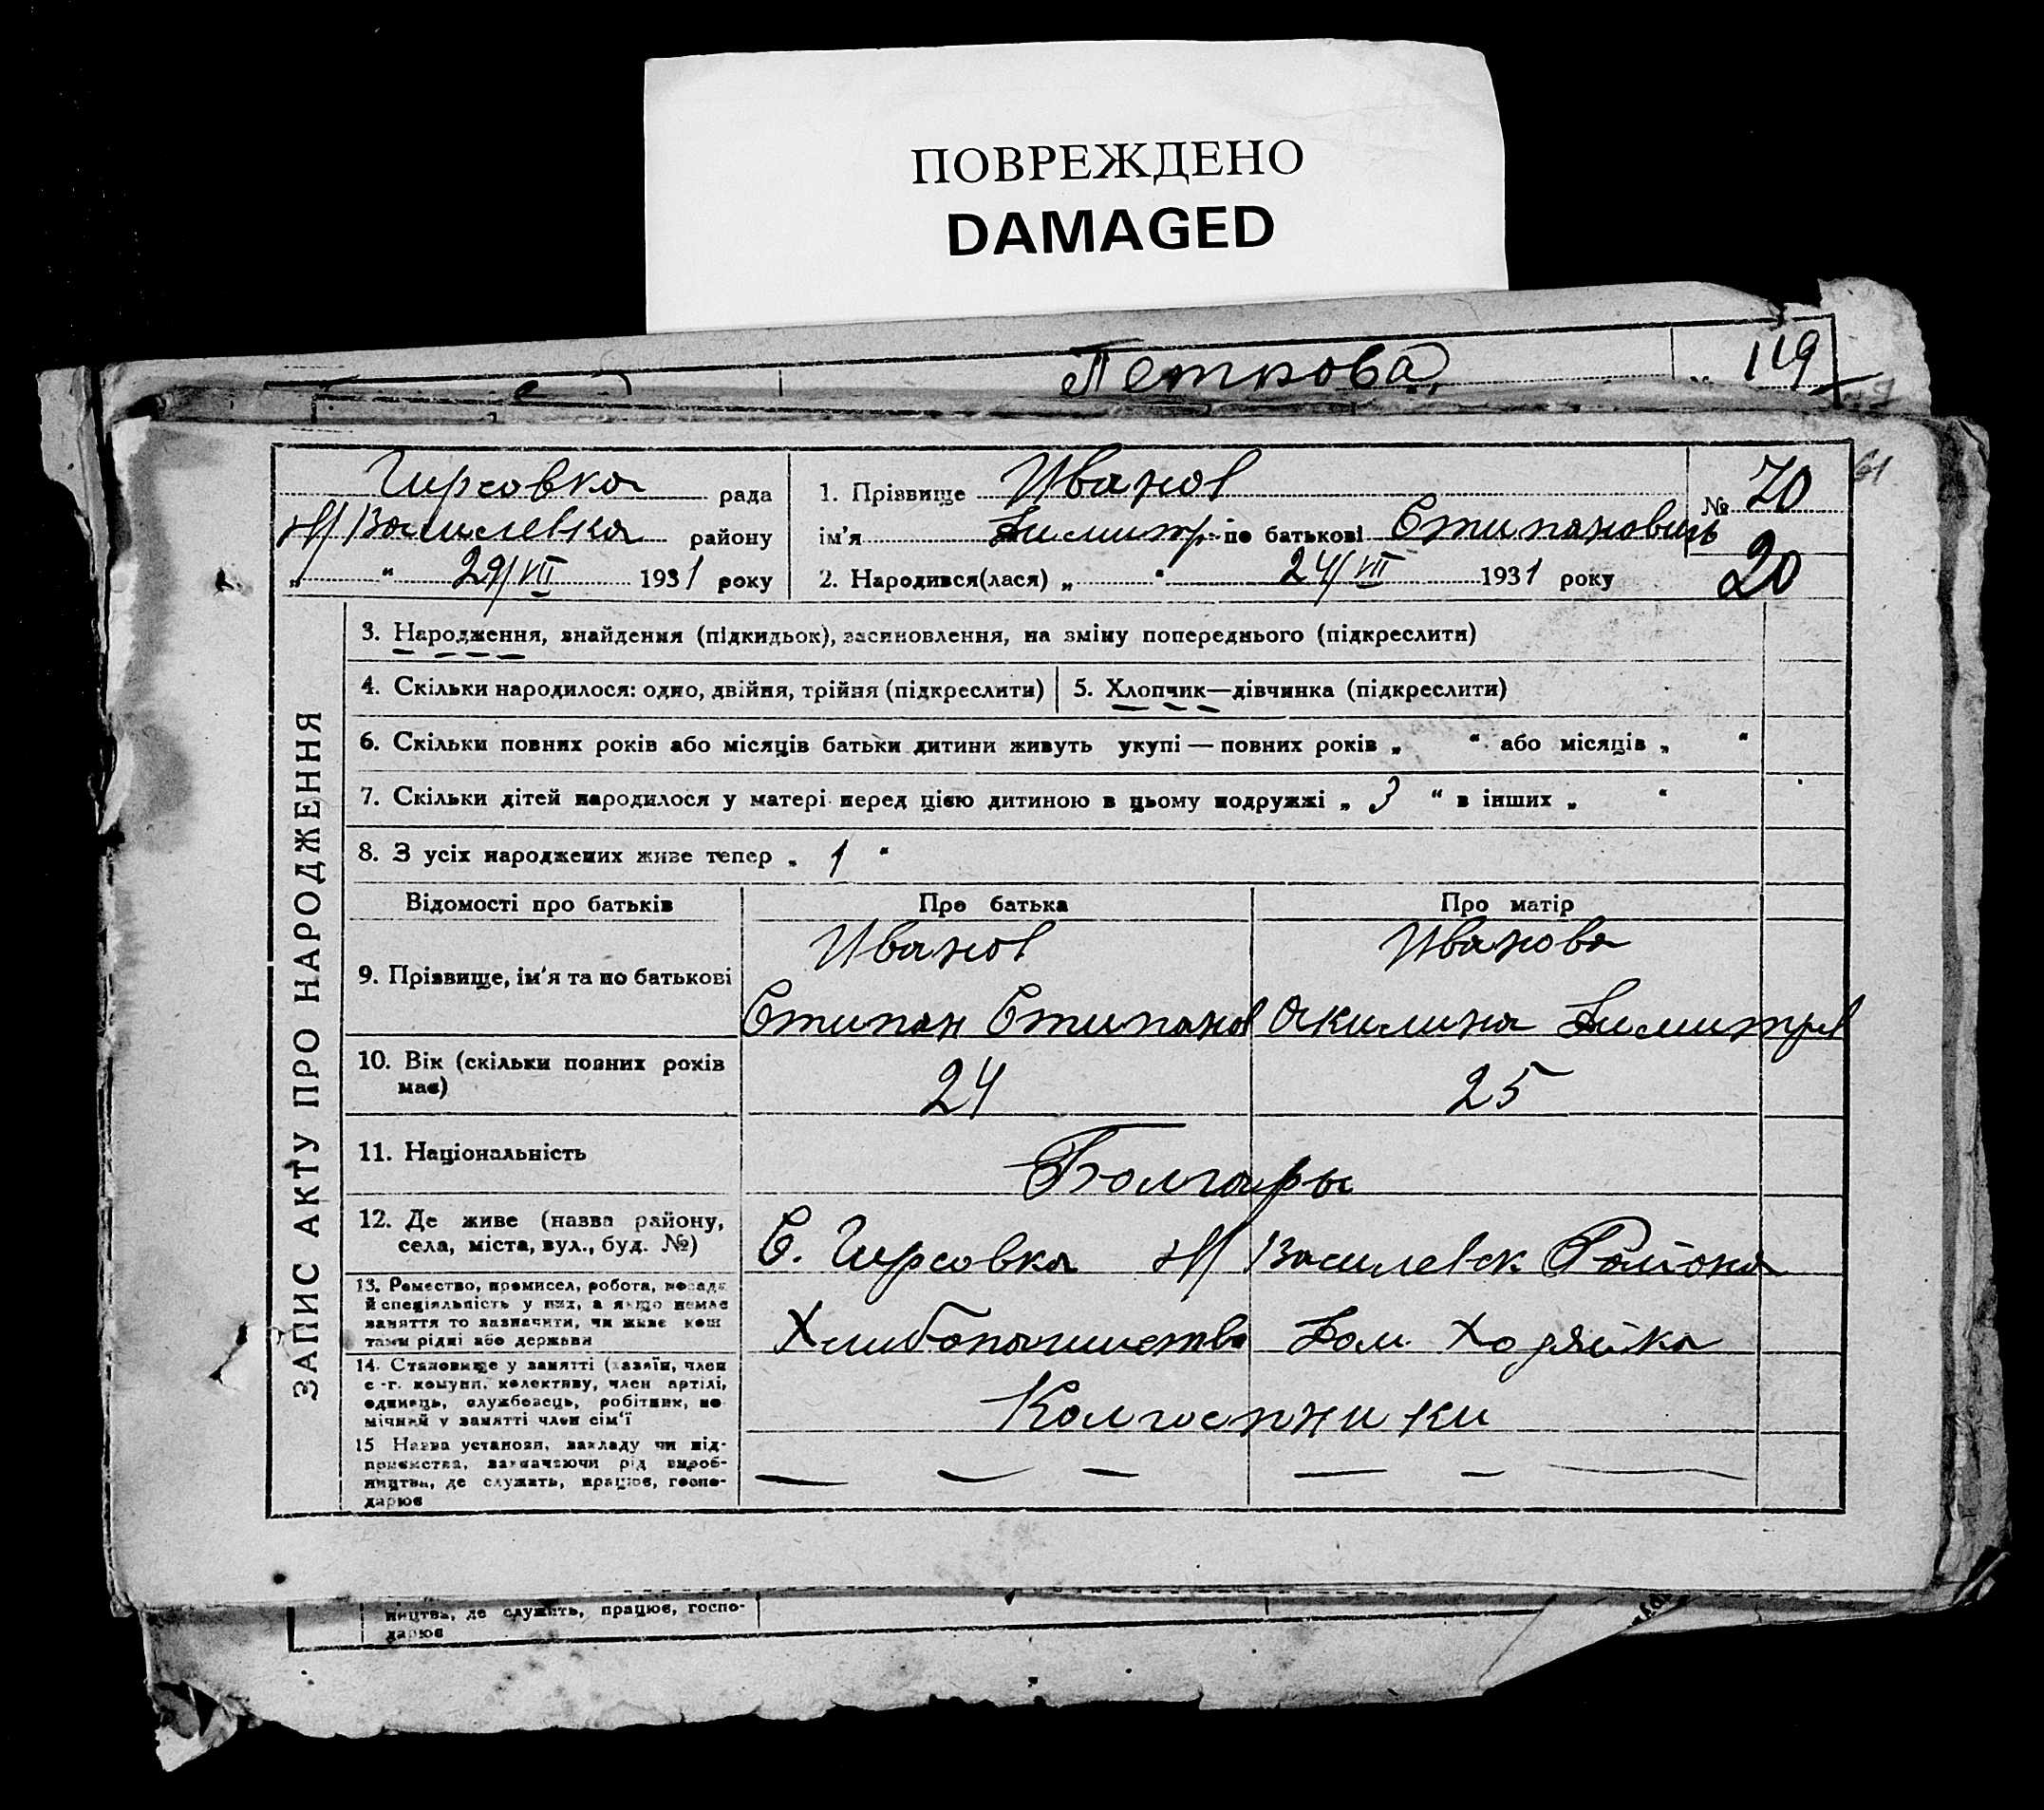 ПОВРЕЖДЕНО
DAMAGED
Петкова
119
Гирсовка рада
Н/Василевка району
„ “ 29/VII 1931 року
1. Прізвище Иванов
ім'я Димитр. по батькові Стипанович
2. Народився(лася) „ “ 24/VII 1931 року
№ 70
20
61
ЗАПИС АКТУ ПРО НАРОДЖЕННЯ
3. Народження, знайдення (підкидьок), засиновлення, на зміну попереднього (підкреслити)
4. Скільки народилося: одно, двійня, трійня (підкреслити)
5. Хлопчик—дівчинка (підкреслити)
6. Скільки повних років або місяців батьки дитини живуть укупі — повних років „ “ або місяців „ “
7. Скільки дітей народилося у матері перед цією дитиною в цьому подружжі „ 3 “ в інших „ “
8. З усіх народжених живе тепер „ 1 “
Відомості про батьків
Про батька
Про матір
9. Прізвище, ім'я та по батькові
Иванов
Стипан Стипанов
Иванова
Акилина Димитров
10. Вік (скільки повних років
має)
24
25
11. Національність
Болгары
12. Де живе (назва району,
села, міста, вул., буд. №)
С. Гирсовка Н/Василевск. Района
13. Ремество, промисел, робота, посада
й спеціяльність у них, а якщо немає
заняття то зазначити, чи живе кош
тами рідні або держави
Хлибопашиство
Дом. Хозяйка
14. Становище у занятті (хазяїн, член
с.-г. комуни, колективу, член артілі,
одинець, службовець, робітник, по
мічний у занятті член сім'ї
Колгоспники
15 Назва установи, закладу чи під-
приємства, зазначаючи рід вироб-
ництва, де служить, працює, госпо-
дарює
ництва, де служить, працює, госпо-
дарює